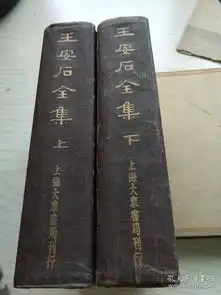 王安石全集 上
上海大衆書局刊行
王安石全集 下
上海大衆書局刊行